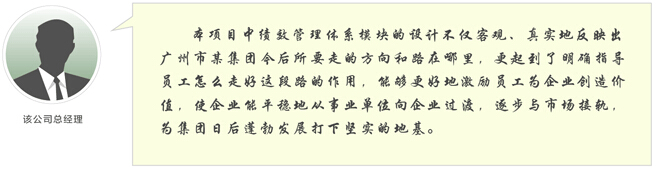 本项目中绩效管理体系模块的设计不仅客观、真实地反映出
广州市某集团今后所要走的方向和路在哪里，更起到了明确指导
员工怎么走好这段路的作用，能够更好地激励员工为企业创造价
值，使企业能平稳地从事业单位向企业过渡，逐步与市场接轨，
为集团日后蓬勃发展打下坚实的地基。
该公司总经理